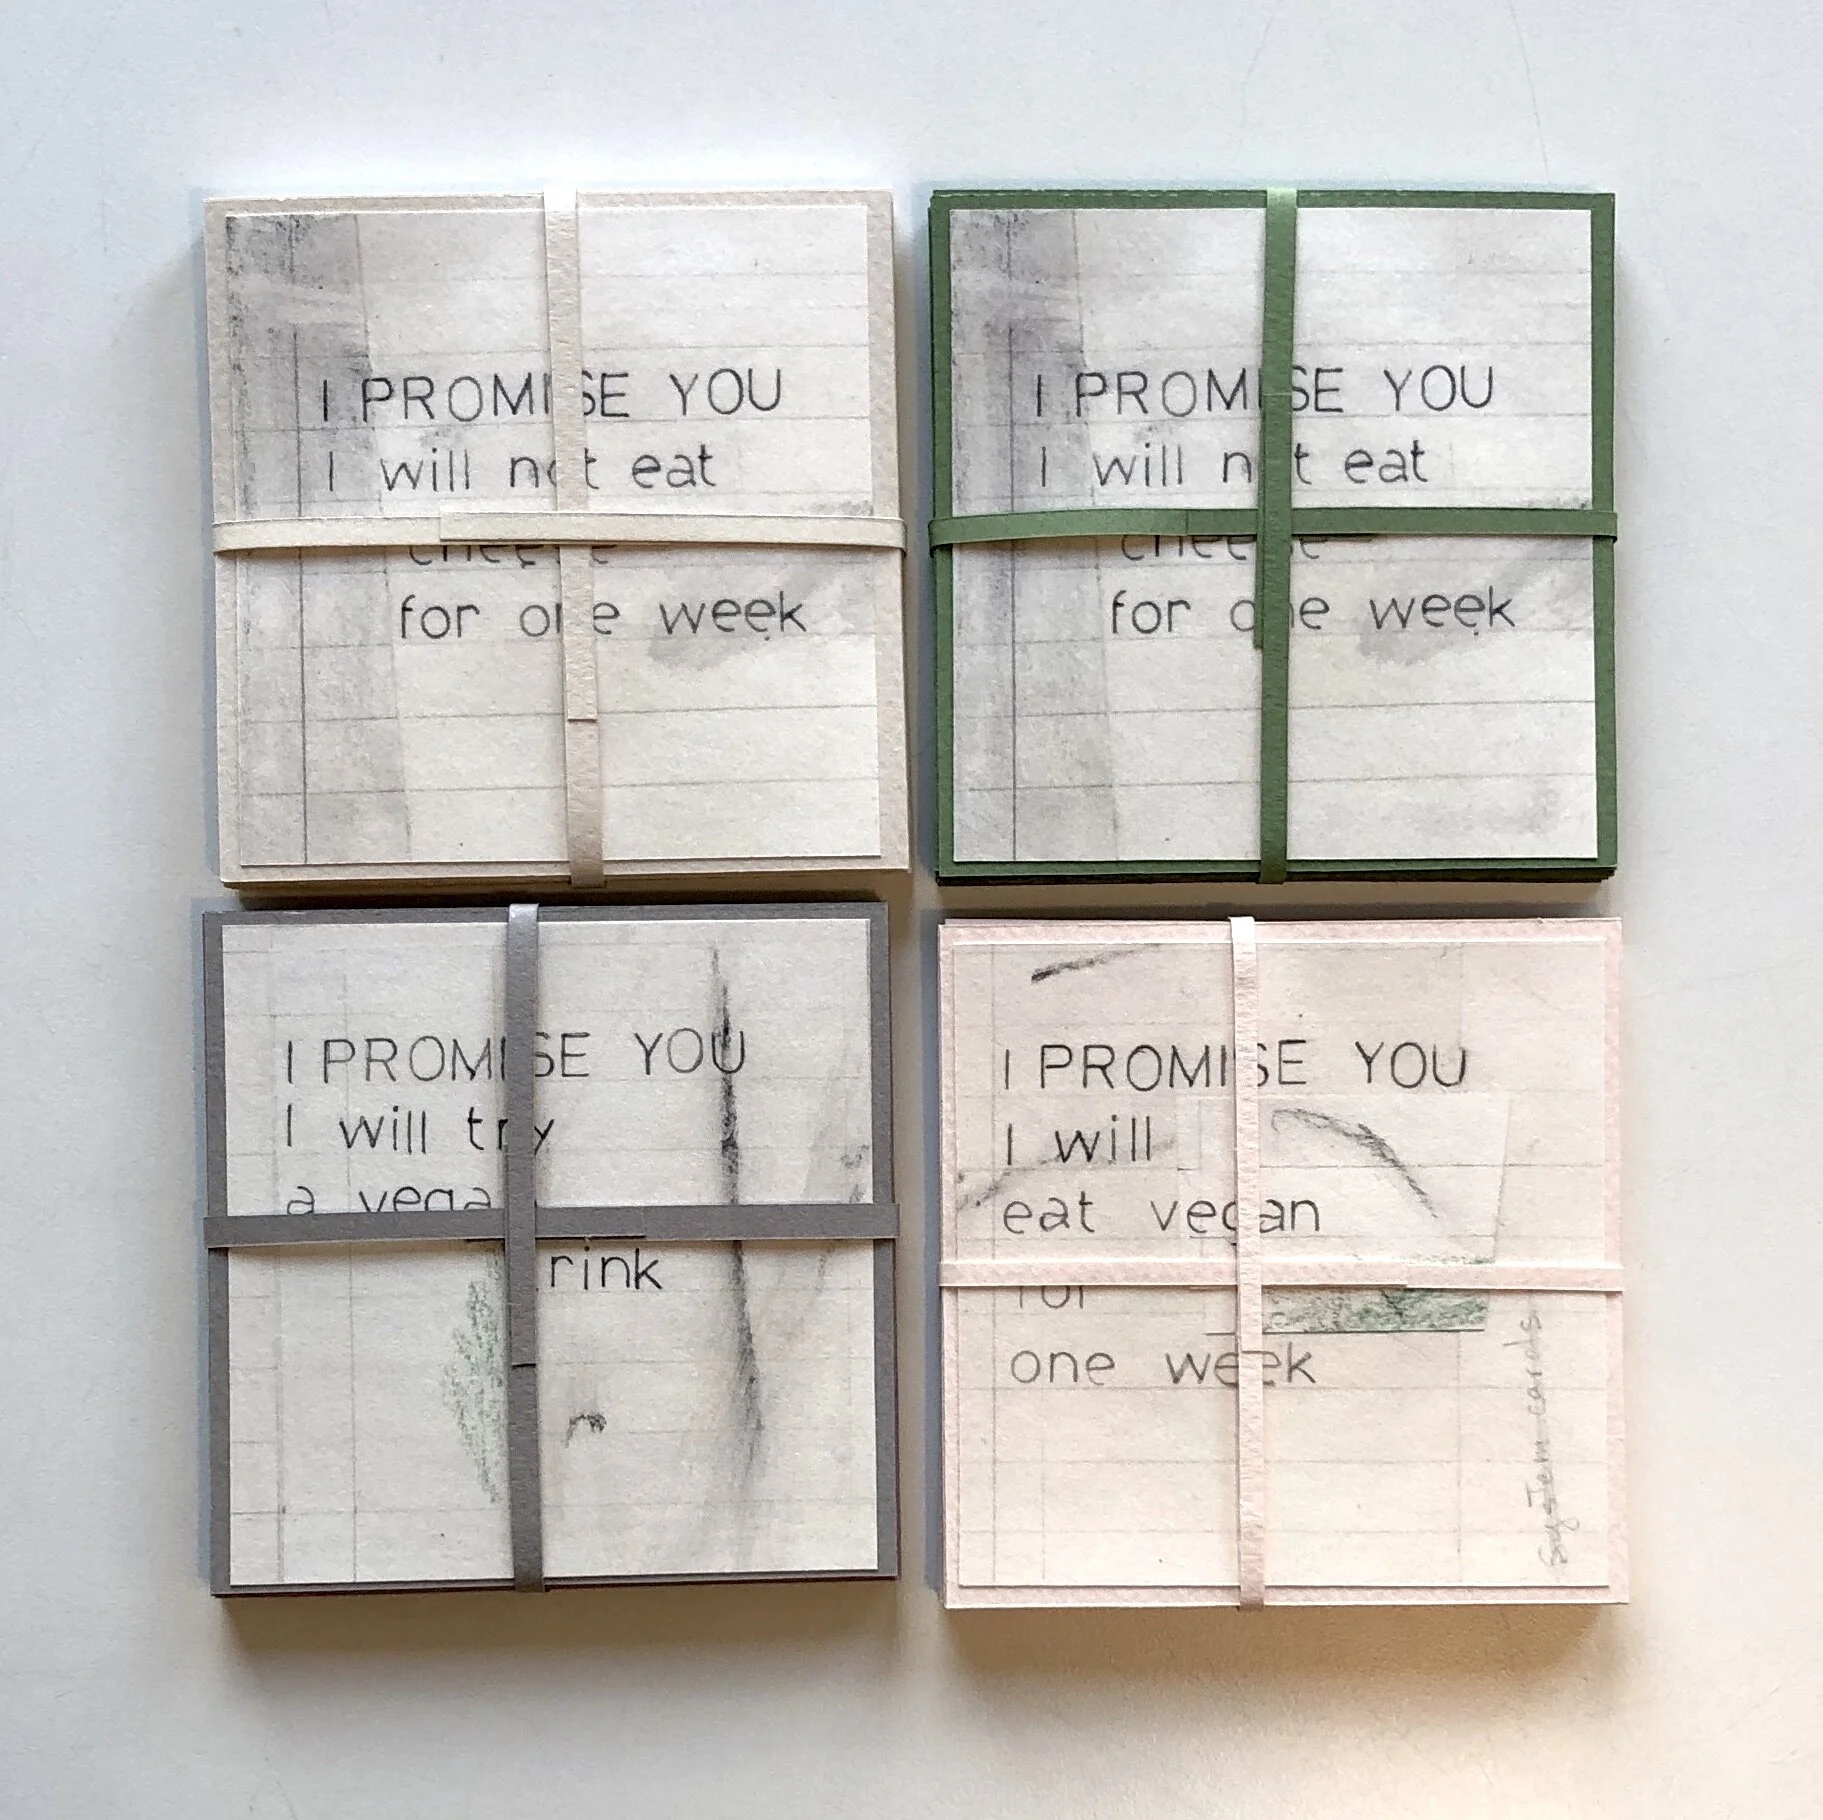 I PROMISE YOU
I will not eat
cheese
for one week
I PROMISE YOU
I will not eat
cheese
for one week
I PROMISE YOU
I will try
a vegan
drink
I PROMISE YOU
I will
eat vegan
for
one week
System cards